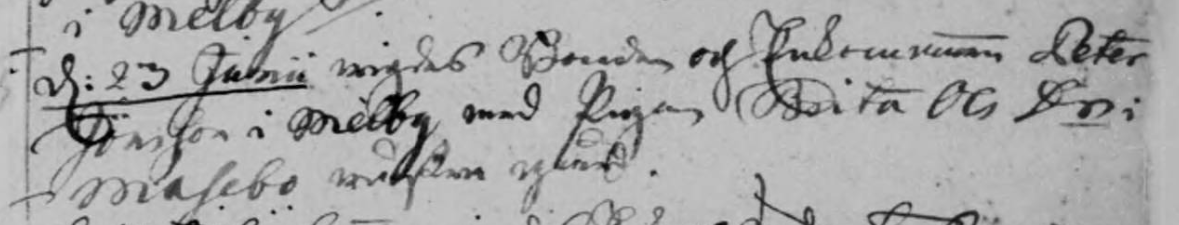 i Melby
d: 23 Junii wigdes Bonden och Enkemannen Peter
Jönsson i Melby med Pigan Brita Ols Dr i
Masebo